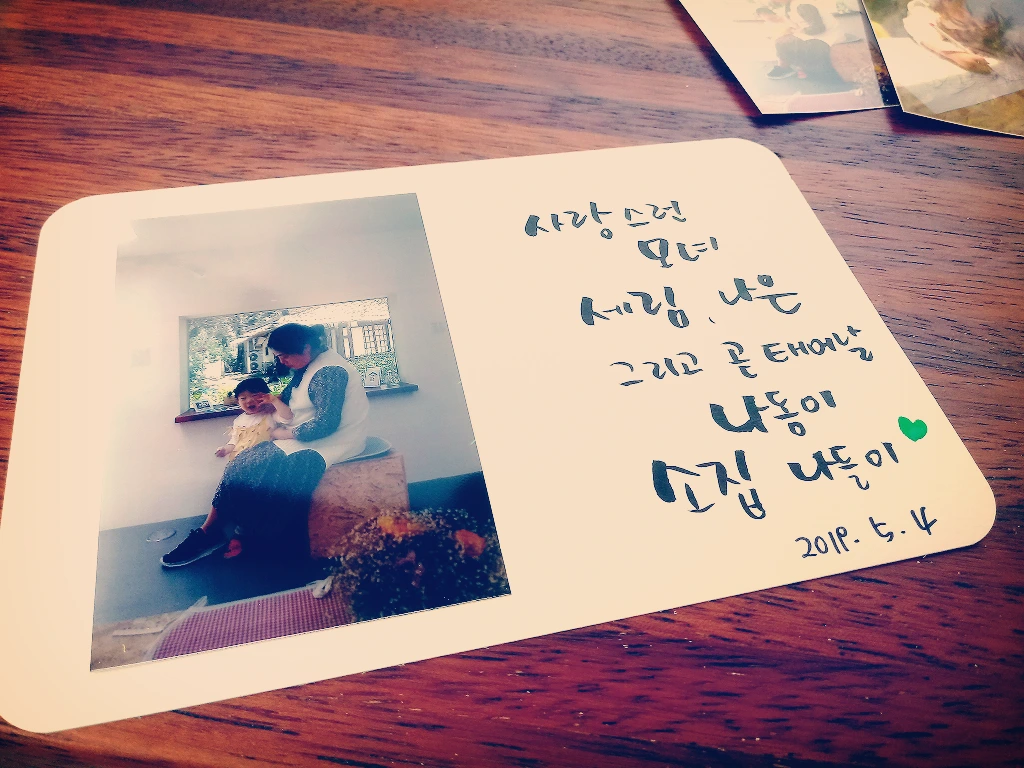 사랑스런
모녀
세림, 나은
그리고 곧 태어날
나동이
소집 나들이
2019. 5. 4